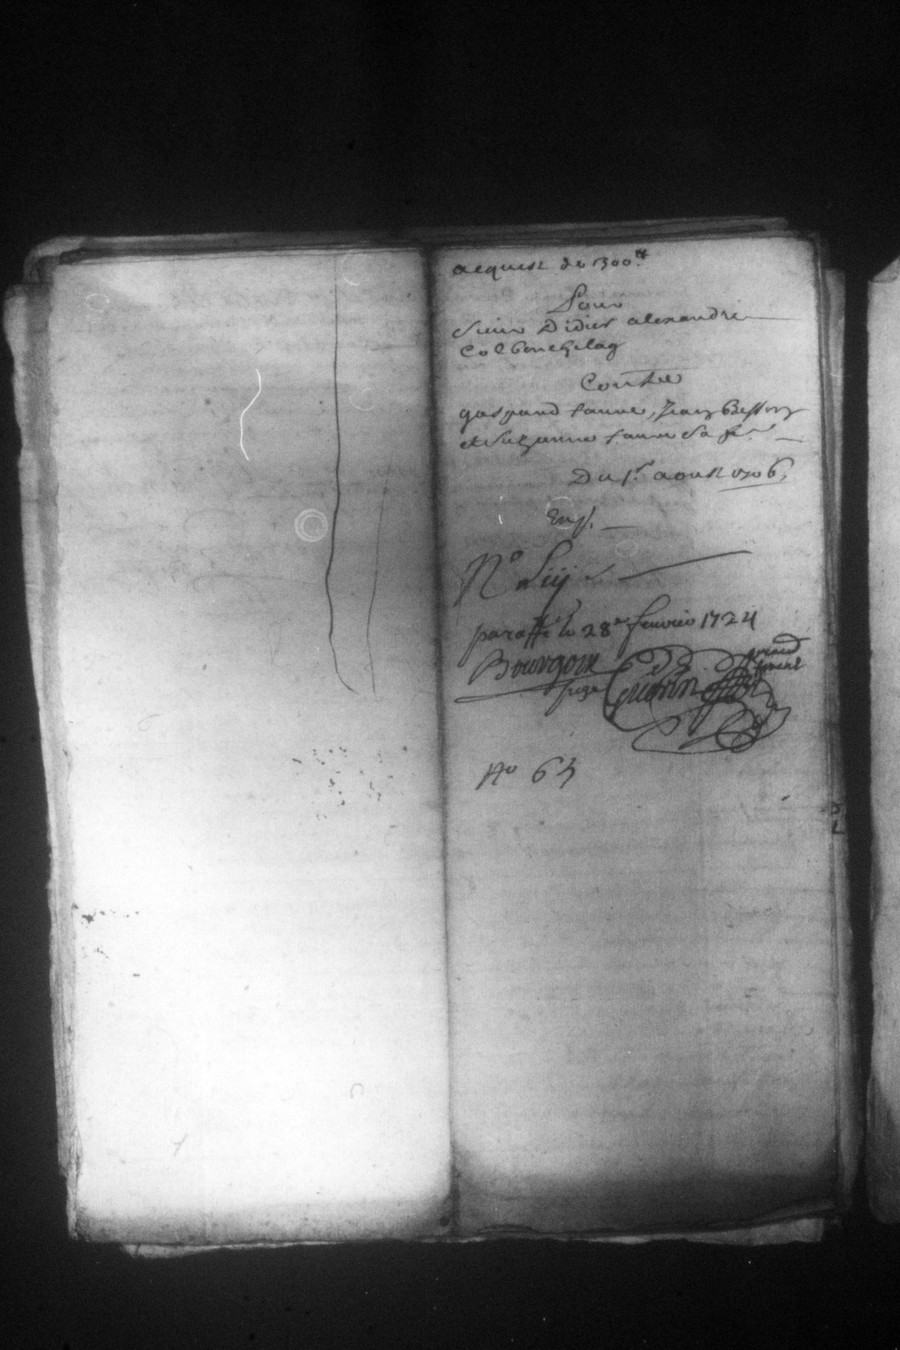 acquest de 1300.ᵗᵗ
Pour
Sieur Didier alexandre
Colbenchlag
Contre
gaspard faure, Jean Besson
et Suzanne faure sa fe.
Du 1.er aoust 1706,
No Liij
paraffé le 28e feuvrier 1724
Bourgoin Guerin
juge
No 63